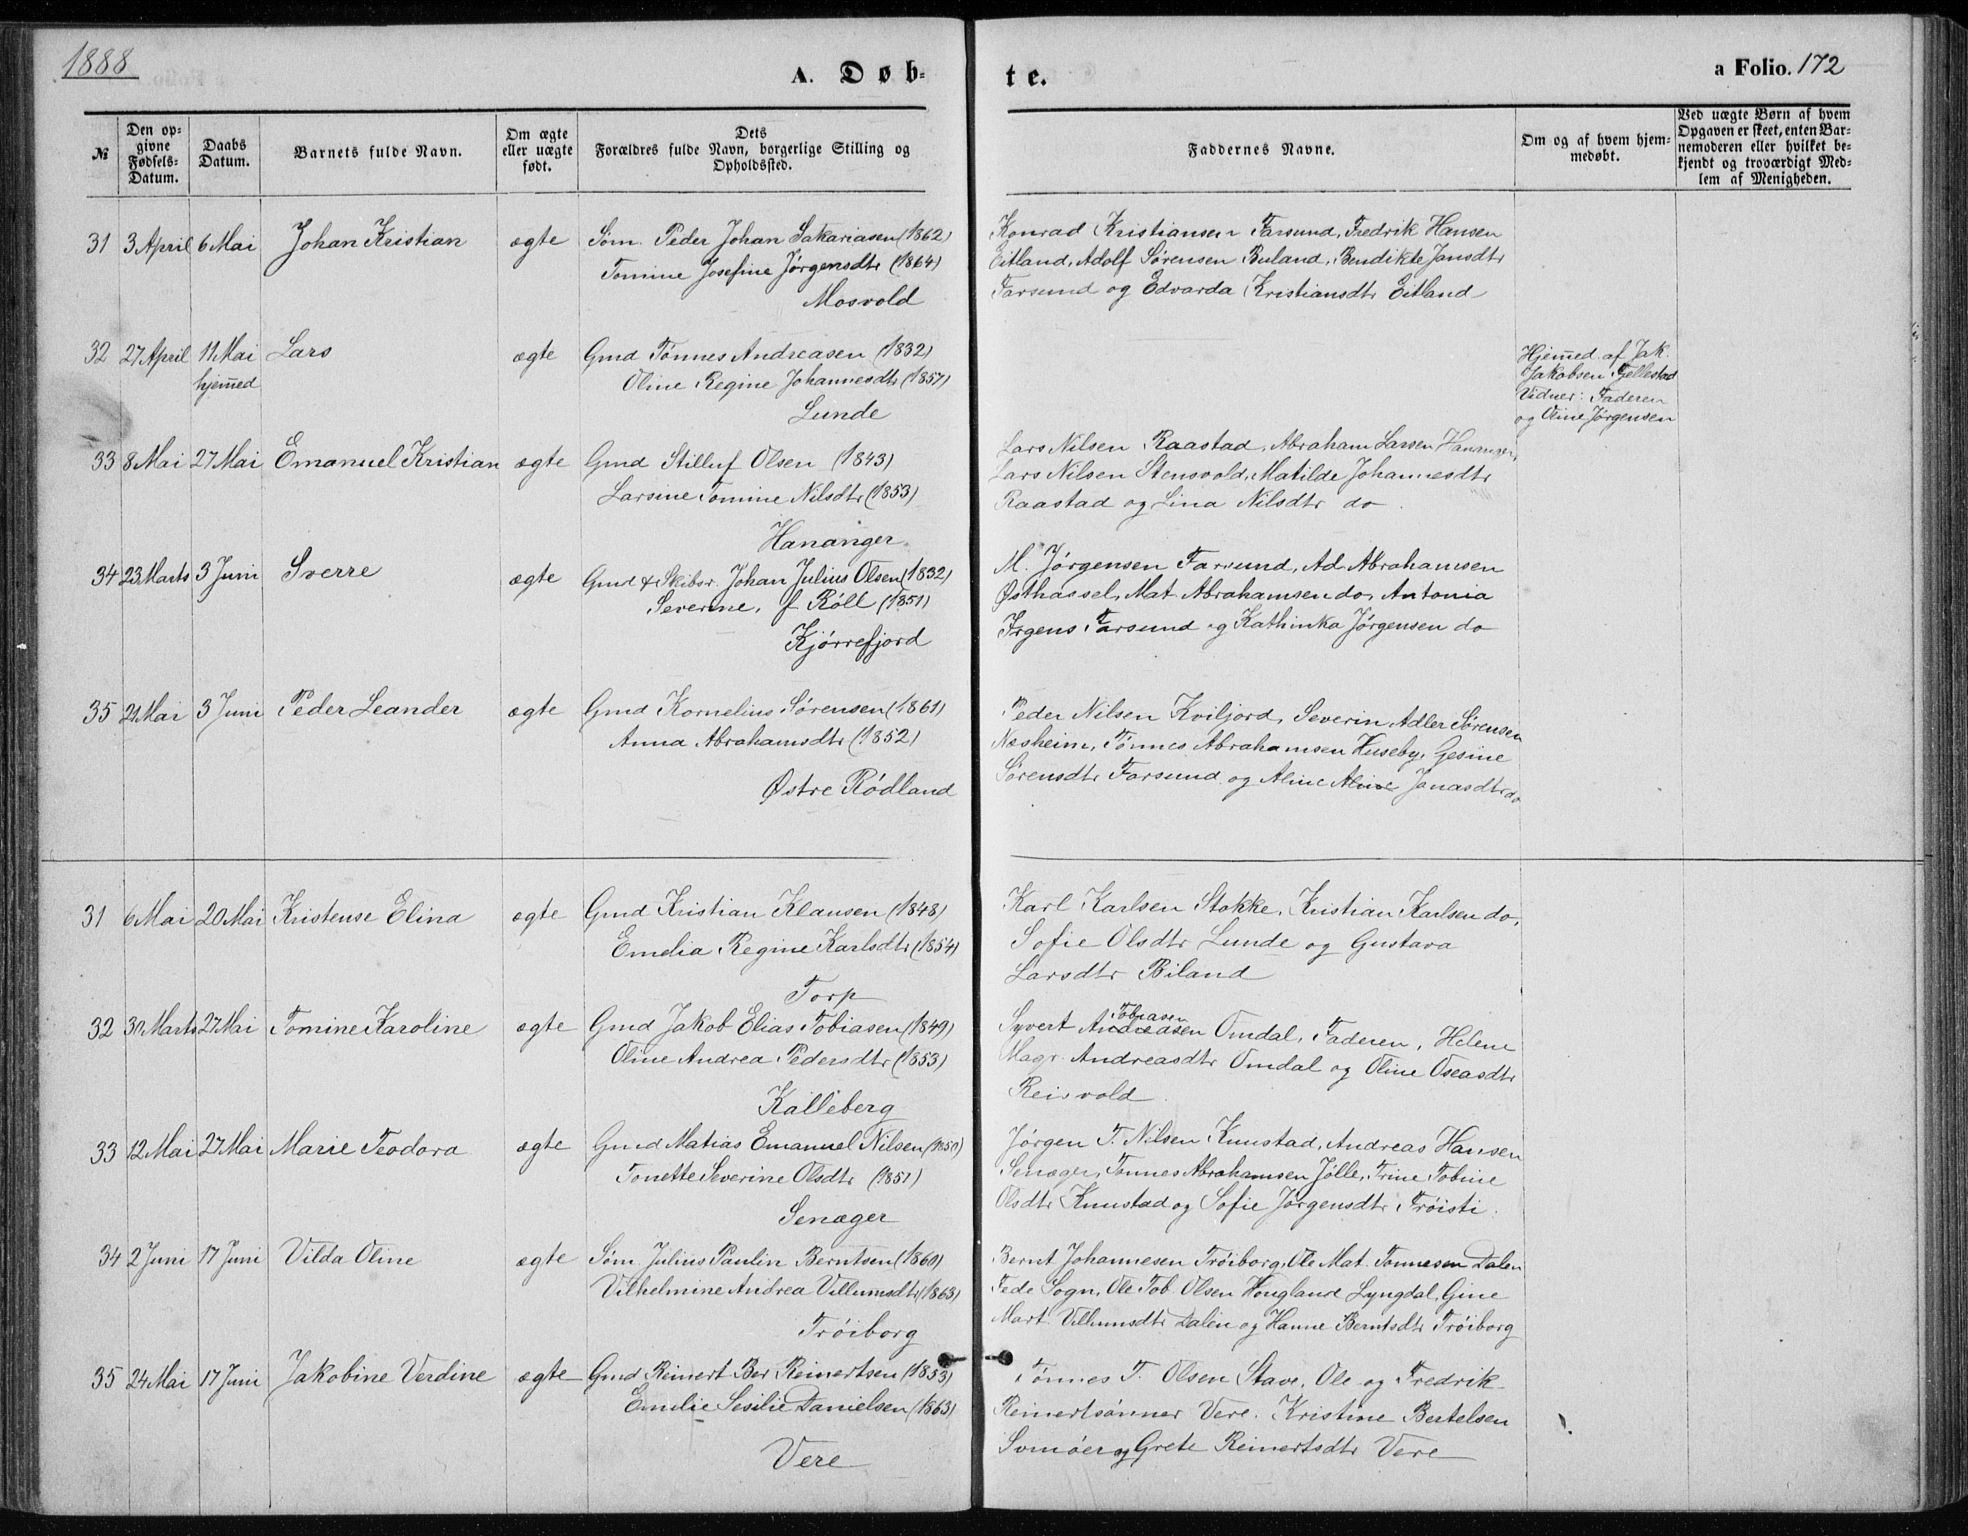 1888
A. Døb-
te.
a Folio. 172
№
Den op-
givne
Fødsels-
Datum.
Daabs
Datum.
Barnets fulde Navn.
Om ægte
eller uægte
født.
Dets
Forældres fulde Navn, borgerlige Stilling og
Opholdssted.
Faddernes Navne.
Om og af hvem hjem-
medøbt.
Ved uægte Børn af hvem
Opgaven er skeet, enten Bar-
nemoderen eller hvilket be-
kjendt og troværdigt Med-
lem af Menigheden.
31 3 April 6 Mai Johan Kristian ægte Søm. Peder Johan Sakariasen (1862)
Tomine Josefine Jørgensdtr (1864)
Mosvold
Konrad Kristiansen Farsund, Fredrik Hansen
Eitland, Adolf Sørensen Buland, Bendikte Jansdtr
Farsund og Edvarda Kristiansdtr Eitland
32 27 April 11 Mai Lars ægte Gmd Tønnes Andreasen (1832)
hjemmed Oline Regine Johannesdtr (1857)
Lunde
Hjemmed. af Jak.
Jakobsen Tjellestad
Vidner: Faderen
og Oline Jørgensen
33 8 Mai 27 Mai Emanuel Kristian ægte Gmd Stilluf Olsen (1843)
Larsine Tomine Nilsdtr (1853)
Hananger
Lars Nilsen Raastad, Abraham Larsen Hananger,
Lars Nilsen Stensvold, Matilde Johannesdtr
Raastad og Lina Nilsdtr do.
34 23 Marts 3 Juni Sverre ægte Gmd & Skibsr. Johan Julius Olsen (1832)
Severine, f. Röll (1851)
Kjörrefjord
M. Jørgensen Farsund, Ad. Abrahamsen
Østhassel, Mat. Abrahamsen do, Antonia
Irgens Farsund og Kathinka Jørgensen do
35 21 Mai 3 Juni Peder Leander ægte Gmd Kornelius Sørensen (1861)
Anna Abrahamsdtr (1852)
Østre Rödland
Peder Nilsen Kviljord, Severin Adler Sørensen
Næsheim, Tønnes Abrahamsen Huseby, Gesine
Sörensdtr Farsund og Aline Aline Jonasdtr do
31 6 Mai 20 Mai Kristense Elina ægte Gmd Kristian Klausen (1848)
Emelia Regine Karlsdtr (1854)
Torp
Karl Karlsen Stokke, Kristian Karlsen do,
Sofie Olsdtr Lunde og Gustava
Larsdtr Biland
32 30 Marts 27 Mai Tomine Karoline ægte Gmd Jakob Elias Tobiasen (1849)
Oline Andrea Pedersdtr (1853)
Kalleberg
Tobiasen
Syvert Andreasen Omdal, Faderen, Helene
Magr. Andreasdtr Omdal og Oline Oseasdtr
Reisvold
33 12 Mai 27 Mai Marie Teodora ægte Gmd Matias Emanuel Nilsen (1850)
Tonette Severine Olsdtr (1851)
Senæger
Jørgen T. Nilsen Knustad, Andreas Hansen
Senæger, Tønnes Abrahamsen Jölle, Trine Tobine
Olsdtr Knustad og Sofie Jørgensdtr Tröisti.
34 2 Juni 17 Juni Vilda Oline ægte Søm Julius Paulin Berntsen (1860)
Vilhelmine Andrea Villumsdtr (1868)
Tröiborg
Bernt Johannesen Tröiborg, Ole Mat. Tønnesen Dalen
Fede Sogn, Ole Tob. Olsen Hougland Lyngdal, Gine
Mart. Villumsdtr Dalen og Hanne Berntsdtr Tröiborg
35 24 Mai 17 Juni Jakobine Verdine ægte Gmd Reinert Ber. Reinertsen (1853)
Emilie Sesilie Danielsen (1863)
Vere
Tønnes T. Olsen Stave, Ole og Fredrik
Reinertsönner Vere. Kristine Bertelsen
og Grete Reinertsdtr Vere